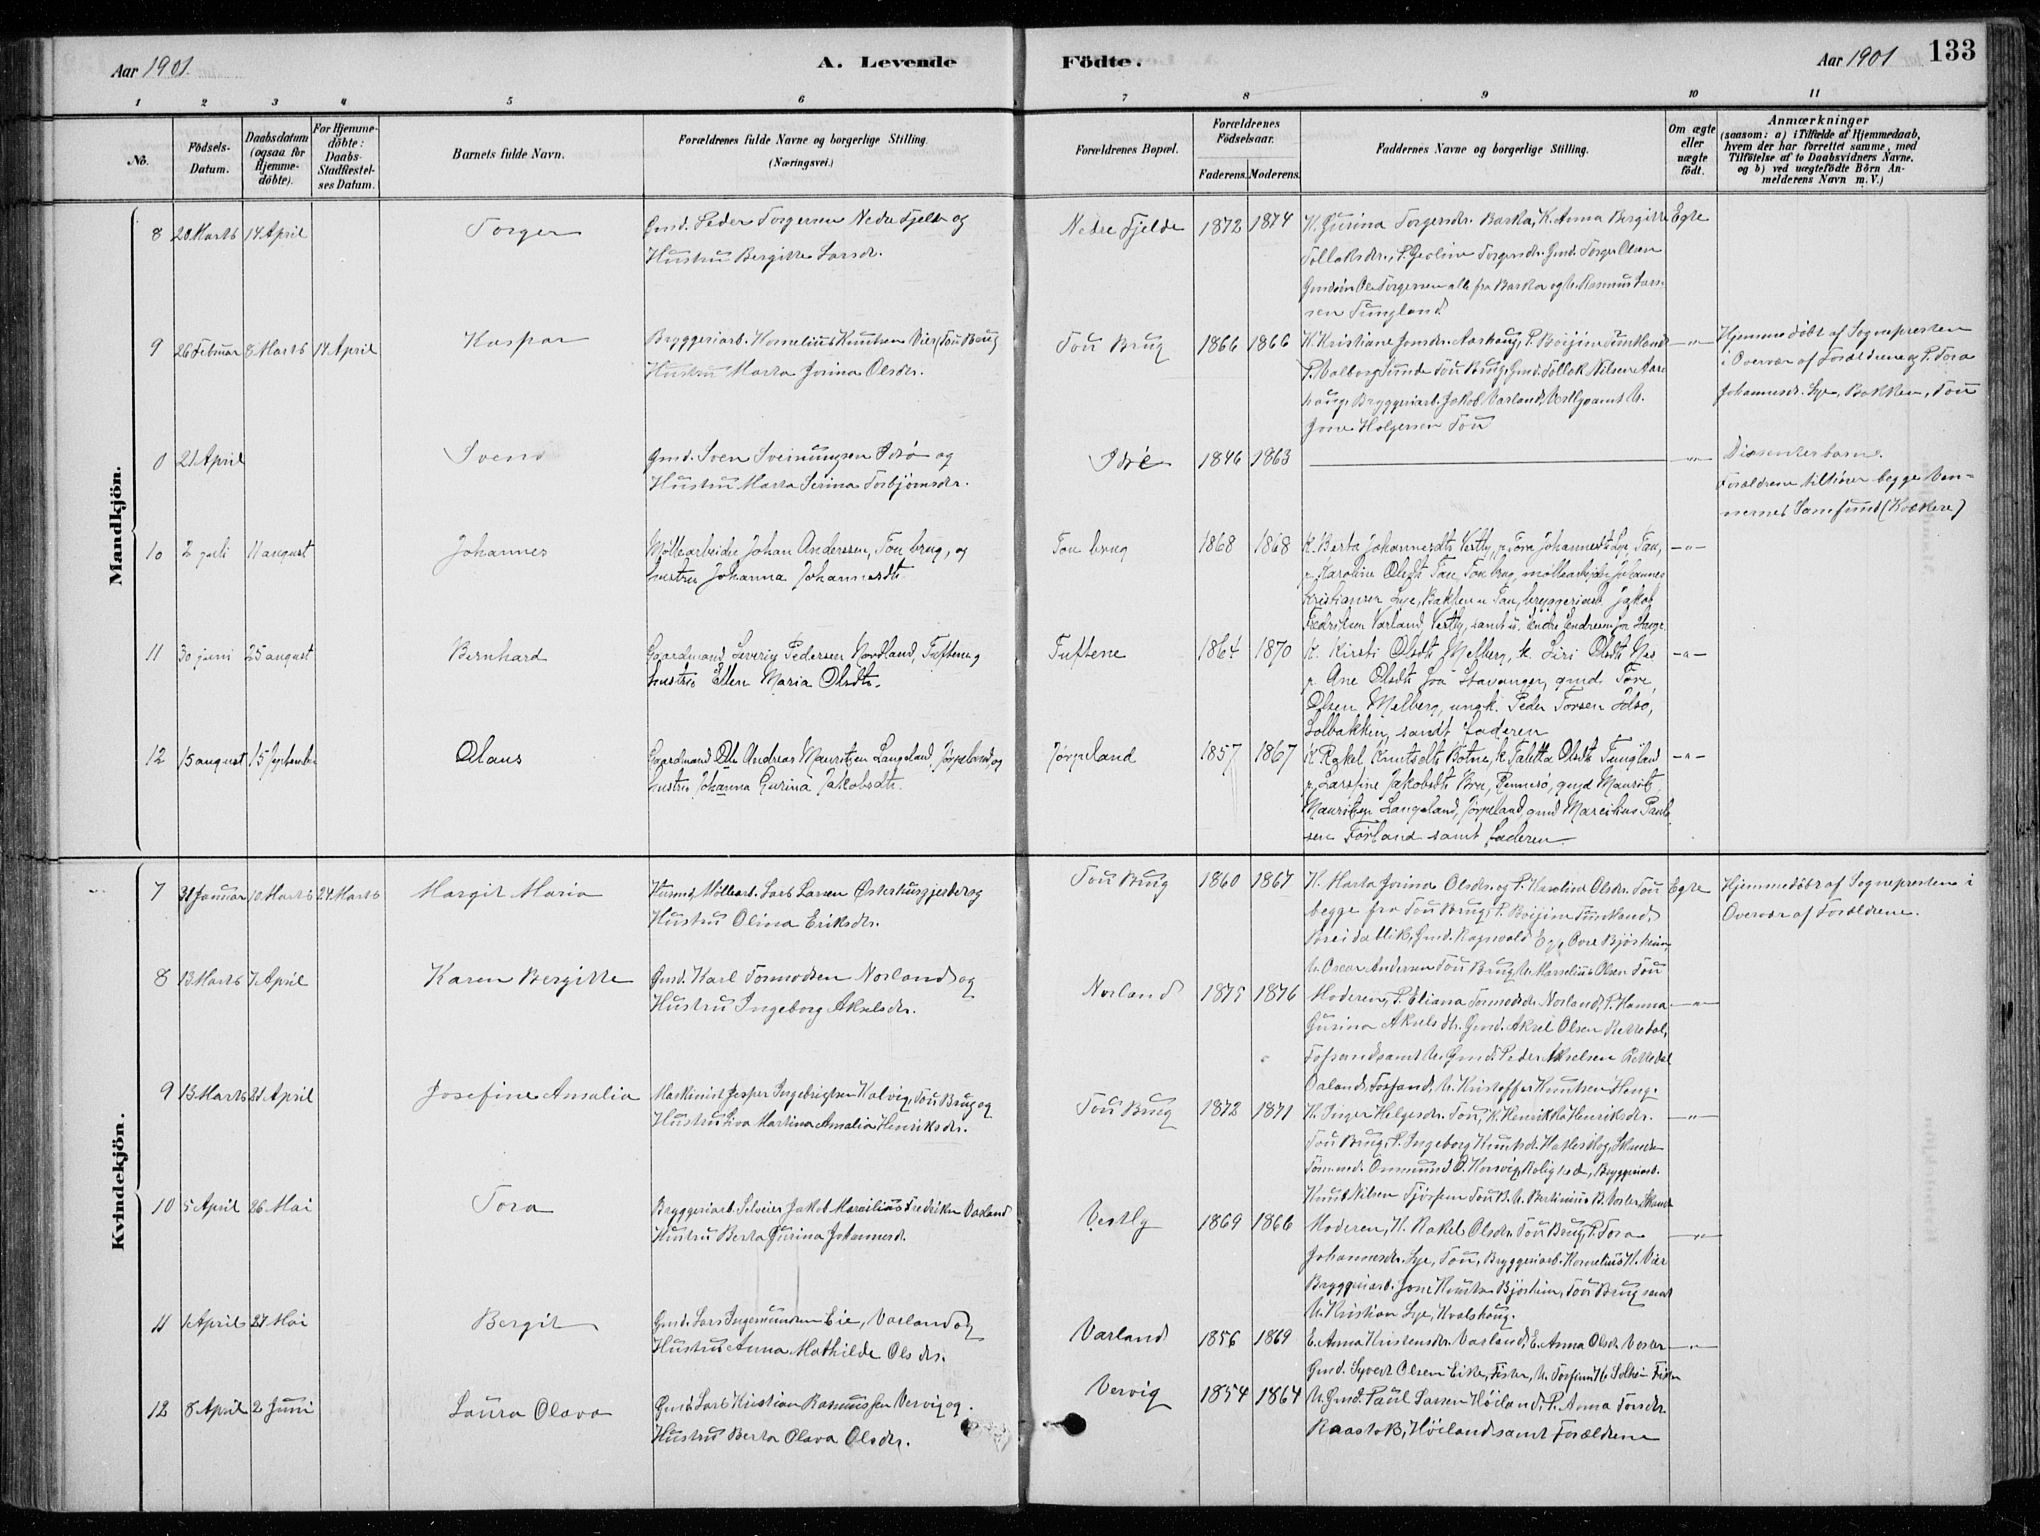 Aar 1901.
A. Levende
Födte.
Aar 1901
133
1 2 3 4 5 6 7 8 9 10 11
No.
Födsels-Datum.
Daabsdatum (ogsaa for Hjemme-döbte).
For Hjemme-döbte: Daabs-Stadfæstel-ses Datum.
Barnets fulde Navn.
Forældrenes fulde Navne og borgerlige Stilling.
(Næringsvei.)
Forældrenes Bopæl.
Forældrenes Födselsaar.
Faderens. Moderens.
Faddernes Navne og borgerlige Stilling.
Om ægte eller uægte födt.
Anmærkninger
(saasom: a) i Tilfælde af Hjemmedaab, hvem der har forrettet samme, med Tilföielse af to Daabsvidners Navne, og b) ved uægtefödte Börn Anmelderens Navn m. V.)
Mandkjön.
8 20 Marts 14 April Torger
Gmd. Peder Torgersen Nedre Fjelde og
Hustru Bergitte Larsdr.
Nedre Fjelde 1872 1874
K. Gurina Torgersdr. Barka, K. Anna Bergitte
Tollaksdr., P. Geoline Torgersdr. Gmd. Torger Olsen
Gmdsön Ole Torgersen alle fra Barka og U. Rasmus Lars-
sen Tungland
Egte
9 26 Februar 8 Marts 14 April Kaspar
Bryggeriarb. Kornelius Knutsen Vier (Tou Brug)
Hustru Marta Jorina Olsdr.
Tou Brug 1866 1866
K. Kristiane Jonsdr. Aarhaug, P. Boijine Tunland
P. Valborg Sunde Tou Brug, Gmd. Tollak Nilsen Aar-
haug, Bryggeriarb. Jakob Varland, Vestly samt U.
Jone Holgersen Tou
-"-
Hjemmedöbt af Sognepresten
i Overvær af Forældrene og P. Tora
Johannesdr. Lye, Bakken, Tou
0 21 April Svend
Gmd. Sven Sveinungsen Idsö og
Hustru Marta Serina Torbjörnsdr.
Idsö 1846 1863
-"-
Dissenterbarn.
Forældrene tilhörer begge Ven-
nernes Samfund (Kvækere)
10 2 juli 11 august Johannes
Møllearbeider Johan Anderssen, Tou brug, og
hustru Johanna Johannesdt.
Tou brug 1868 1868
k. Berta Johannesdt. Vestly, p. Tora Johannesdt. Lye, Tau,
p. Karoline Olsdt. Tau, Tou brug, møllearbeider Johannes
Kristiansen Lye, Bakken Tau, bryggeriarb. Jakob
Fredriksen Varland Vestly, samt u. Endre Endresen fra Hauge
-"-
11 30 juni 25 august Bernhard
Gaardmand Severin Pedersen Nordland, Tuftene og
hustru Ellen Maria Olsdt.
Tuftene 1864 1870
k. Kirsti Olsdt. Melberg, k. Siri Olsdt. Nes
p. Ane Olsdt. fra Stavanger, gmd. Tore
Olsen Melberg, ungk. Peder Torsen Idsø,
Solbakken, samt faderen
-"-
12 15 august 15 September Olaus
Gaardmand Ole Andreas Mauritzen Langeland, Jørpeland, og
hustru Johanna Gurina Jakobsdt.
Jørpeland 1857 1867
K. Rakel Knutsdt. Botne, k. Taletta Olsdt. Tungland
p. Larsine Jakobsdt. Bru, Rennesø, gmd. Maurits
Mauritzen Langeland, Jørpeland, gmd. Marcilius Paul-
sen Førland samt faderen
-"-
Kvindekjön.
7 31 Januar 10 Marts 24 Marts Margit Maria
Husmd, Möllearb. Lars Larsen Österhusgjerde og
Hustru Olina Eriksdr.
Tou Brug 1860 1867
K. Marta Jorina Olsdr. og P. Karolina Olsdr. Tou
begge fra Tou Brug, P. Boijine Tunland,
Breidablik, Gmd. Ragnvald Ege, Övre Bjösheim
U. Oscar Andersen Tou Brug, U. Marselius Olsen Tou
Egte
Hjemmedöbt af Sognepresten i
Overvær af Forældrene.
8 13 Marts 7 April Karen Bergitte
Gmd. Karl Tormodsen Norland og
Hustru Ingeborg Akselsdr.
Norland 1875 1876
Moderen, P. Eliana Tormodsdr. Norland, P. Hanna
Gurina Akselsdtr. Gmd. Aksel Olsen Rettedal,
Fossand samt U. Gmds. Peder Akselsen Rettedal
-"-
9 13 Marts 21 April Josefine Amalia
Maskinist Jesper Ingebrigtsen Kalvig, Tou Brug og
Hustru Eva Martina Amalia Henriksdr.
Tou Brug 1872 1871
K. Inger Helgesdr. Tou, K. Henrikka Henriksdr.
Tou Brug, P. Ingeborg Knutsdr.
-"-
10 5 April 26 Mai Tora
Bryggeriarb. Selveier Jakob Marcilius Fredriksen Varland
Hustru Berta Gurina Johannesdr.
Vestly 1869 1866
Moderen, K. Rakel Olsdr. Tou Brug, P. Tora
Johannesdr. Lye, Tou, Bryggeriarb. Kornelius K. Vier
Bryggeriarb. Jone Knutsen Bjösheim, Tou Brug samt
U. Kristian Lye, Kvalshaug.
-"-
11 1 April 27 Mai Bergit
Gmd. Lars Ingemundsen Eie, Varland og
Hustru Anna Mathilde Olsdr.
Varland 1856 1869
E. Anna Kristensdr. Varland, E. Anna Olsdr.
Gmd. Syvert Olsen Eike, Fister,
-"-
12 8 April 2 Juni Laura Olava
Gmd. Lars Kristian Rasmussen Vervig og
Hustru Berta Olava Olsdr.
Vervig 1854 1864
U. Gmd. Paul Larsen Höiland, P. Anna Torsdr.
Höiland samt Forældrene